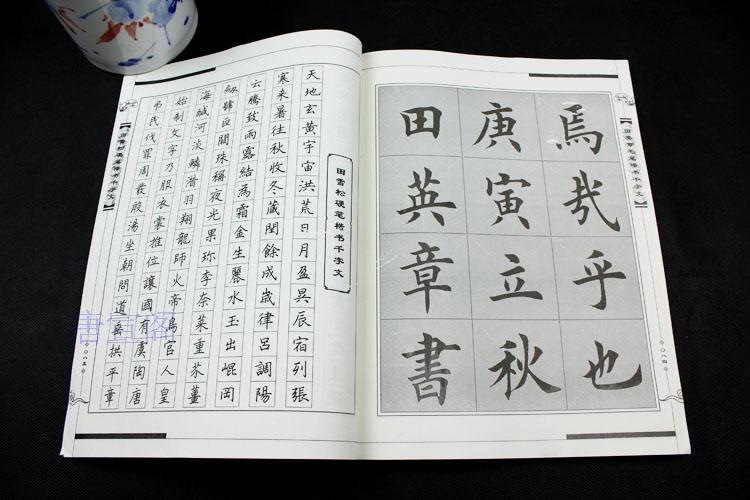 焉哉乎也
庚寅立秋
田英章書
【田英章毛笔楷书千字文】
〇八四
田雪松硬笔楷书千字文
天地玄黄宇宙洪荒日月盈昃辰宿列張
寒来暑往秋收冬藏閏餘成歲律呂調陽
云騰致雨露結為霜金生麗水玉出崐岡
劔號巨闕珠稱夜光果珎李奈菜重芥薑
海鹹河淡鱗潛羽翔龍師火帝鳥官人皇
始制文字乃服衣裳推位讓國有虞陶唐
弔民伐罪周發殷湯坐朝問道垂拱平章
【田雪松硬笔楷书千字文】
〇八五
書宣閣